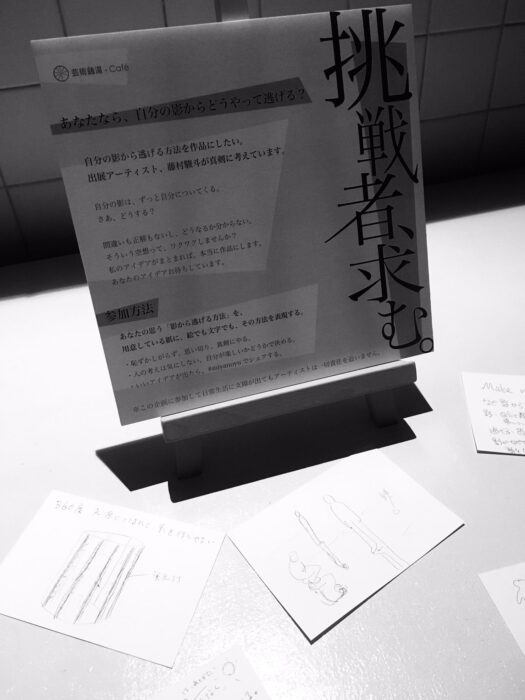 芸術銭湯+Café
挑戦者、求む。
あなたなら、自分の影からどうやって逃げる？
自分の影から逃げる方法を作品にしたい。
出展アーティスト、藤村駿斗が真剣に考えています。
自分の影は、ずっと自分についてくる。
さあ、どうする？
間違いも正解もないし、どうなるか分からない。
そういう空想って、ワクワクしませんか？
私のアイデアがまとまれば、本当に作品にします。
あなたのアイデアお待ちしています。
参加方法
あなたの思う「影から逃げる方法」を、
用意している紙に、絵でも文字でも、その方法を表現する。
・恥ずかしがらず、思い切り、真剣にやる。
・人の考えは気にしない。自分が楽しいかどうかで決める。
・いいアイデアが出たら、でシェアする。
※この企画に参加して日常生活に支障が出てもアーティストは一切責任を追いません。
Make
360度